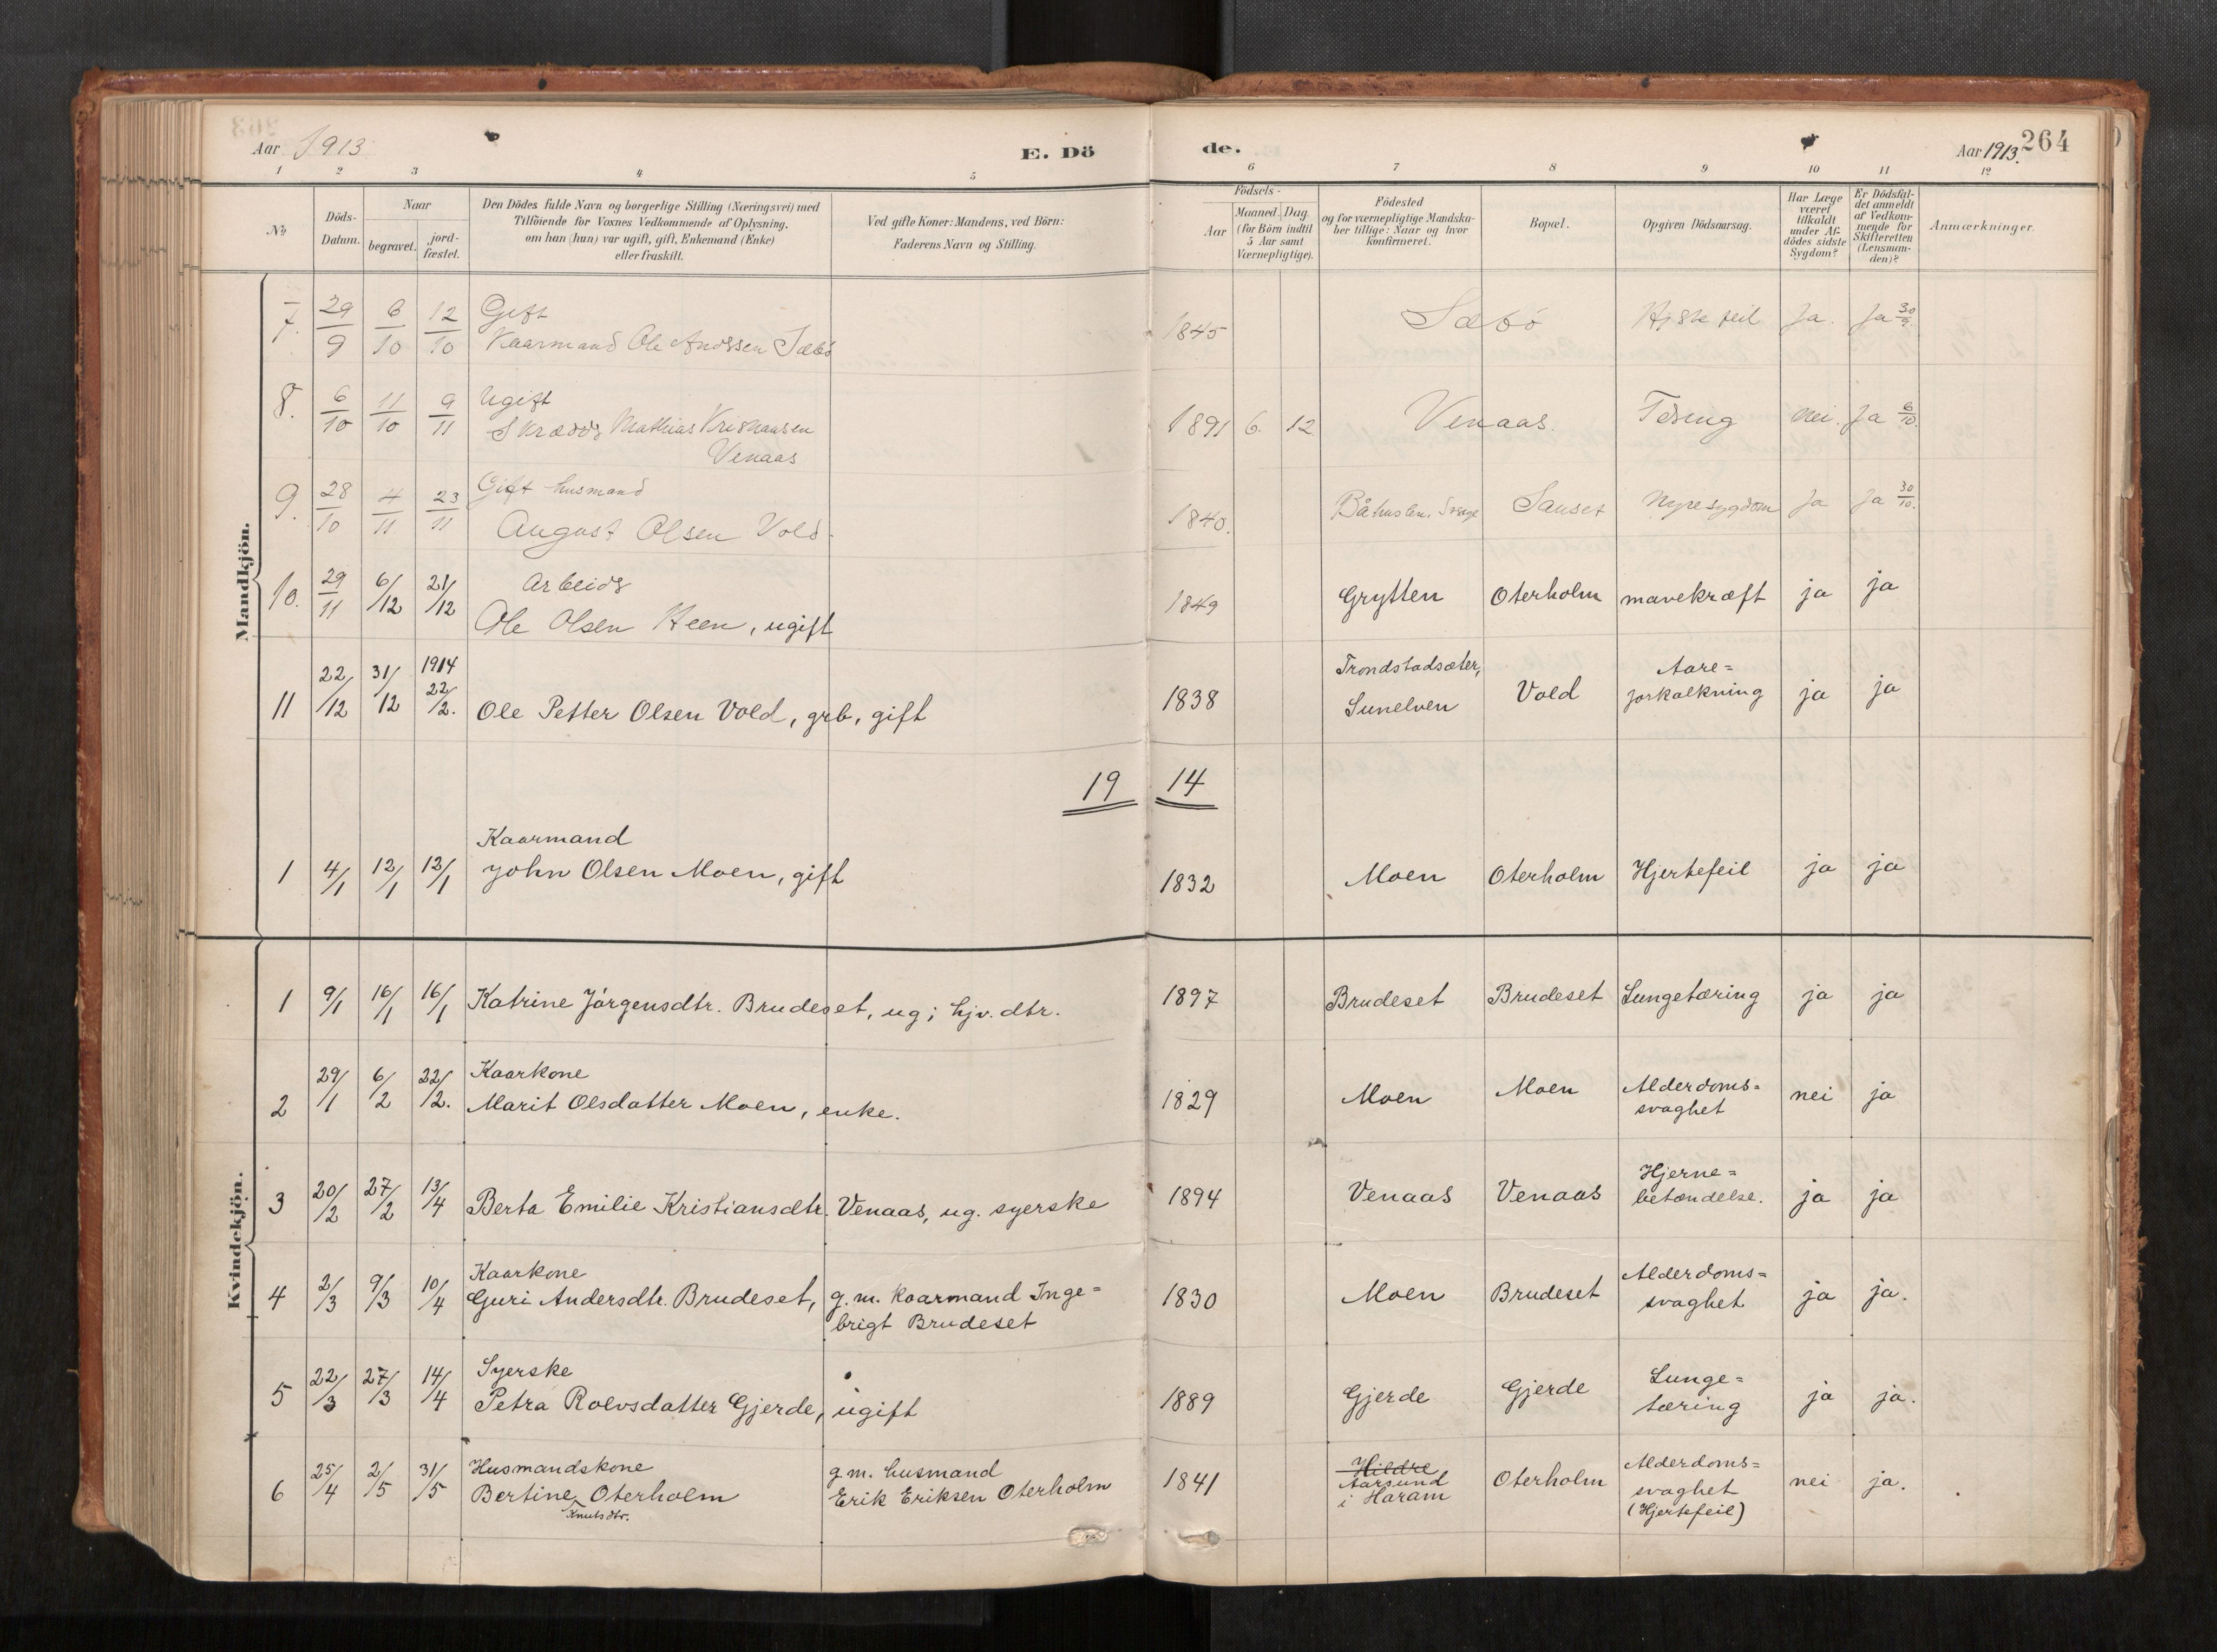 Aar 1913
E. Döde.
Aar 1913.
264
1 2 3 4 5 6 7 8 9 10 11 12
№
Döds-Datum.
Naar
begravet.
jord-fæstet.
Den Dödes fulde Navn og borgerlige Stilling (Næringsvei) med
Tilföiende for Voxnes Vedkommende af Oplysning,
om han (hun) var ugift, gift, Enkemand (Enke)
eller fraskilt.
Ved gifte Koner: Mandens, ved Börn:
Faderens Navn og Stilling.
Födsels-
Aar
Maaned. Dag.
(for Börn indtil
5 Aar samt
Værnepligtige).
Födested
og for værnepligtige Mandska-
ber tillige: Naar og hvor
konfirmeret.
Bopæl.
Opgiven Dödsaarsag.
Har Læge
været
tilkaldt
under Af-
dödes sidste
Sygdom?
Er Dödsfal-
det anmeldt
af Vedkom-
mende for
Skifteretten
(Lensman-
den)?
Anmærkninger.
Mandkjön.
7. 29/9 6/10 12/10 Gift
Kaarmand Ole Andssen Sæbö 1845 Sæbö Hj feil Ja. Ja 30/9
8. 6/10 11/10 9/11 Ugift
Mathias Kristiansen
Venaas 1891 6. 12 Venaas. Tæring nei. Ja 6/10.
9. 28/10 4/11 23/11 Gift husmand
August Olsen Vold. 1840. Båhuslen. Sverge Sauset Nyresygdom Ja Ja 30/10.
10. 29/11 6/12 21/12 Arbeids
Ole Olsen Heen, ugift 1849 Grytten Oterholm mavekræft ja ja
11 22/12 31/12 1914 22/2. Ole Petter Olsen Vold, grb, gift 1838 Trondstadsæter,
Sunelven Vold Aare=
forkalkning ja ja
19 14
Kaarmand
1 4/1 12/1 12/1 John Olsen Moen, gift 1832 Moen Oterholm Hjertefeil ja ja
Kvindekjön.
1 9/1 16/1 16/1 Katrine Jörgensdtr. Brudeset, ug; hjv. dtr. 1897 Brudeset Brudeset Lungetæring ja ja
2 29/1 6/2 22/2. Kaarkone
Marit Olsdatter Moen, enke. 1829 Moen Moen Alderdoms=
svaghet nei ja
3 20/2 27/2 13/4 Berta Emilie Kristiansdtr. Venaas, ug. syerske 1894 Venaas Venaas Hjerne=
betændelse. ja ja
4 2/3 9/3 10/4 Kaarkone
Guri Andersdtr. Brudeset, g. m. kaarmand Inge=
brigt Brudeset 1830 Moen Brudeset Alderdoms=
svaghet ja ja.
5 22/3 27/3 14/4 Syerske
Petra Roevsdatter Gjerde, ugift 1889 Gjerde Gjerde Lunge=
tæring ja ja.
6 25/4 2/5 31/5 Husmandskone
Bertine Knutsdtr. Oterholm g. m. husmand
Erik Eriksen Oterholm 1841 Hildre
Aarsund
i Haram Oterholm Alderdoms=
svaghet
(Hjertefeil) nei ja.